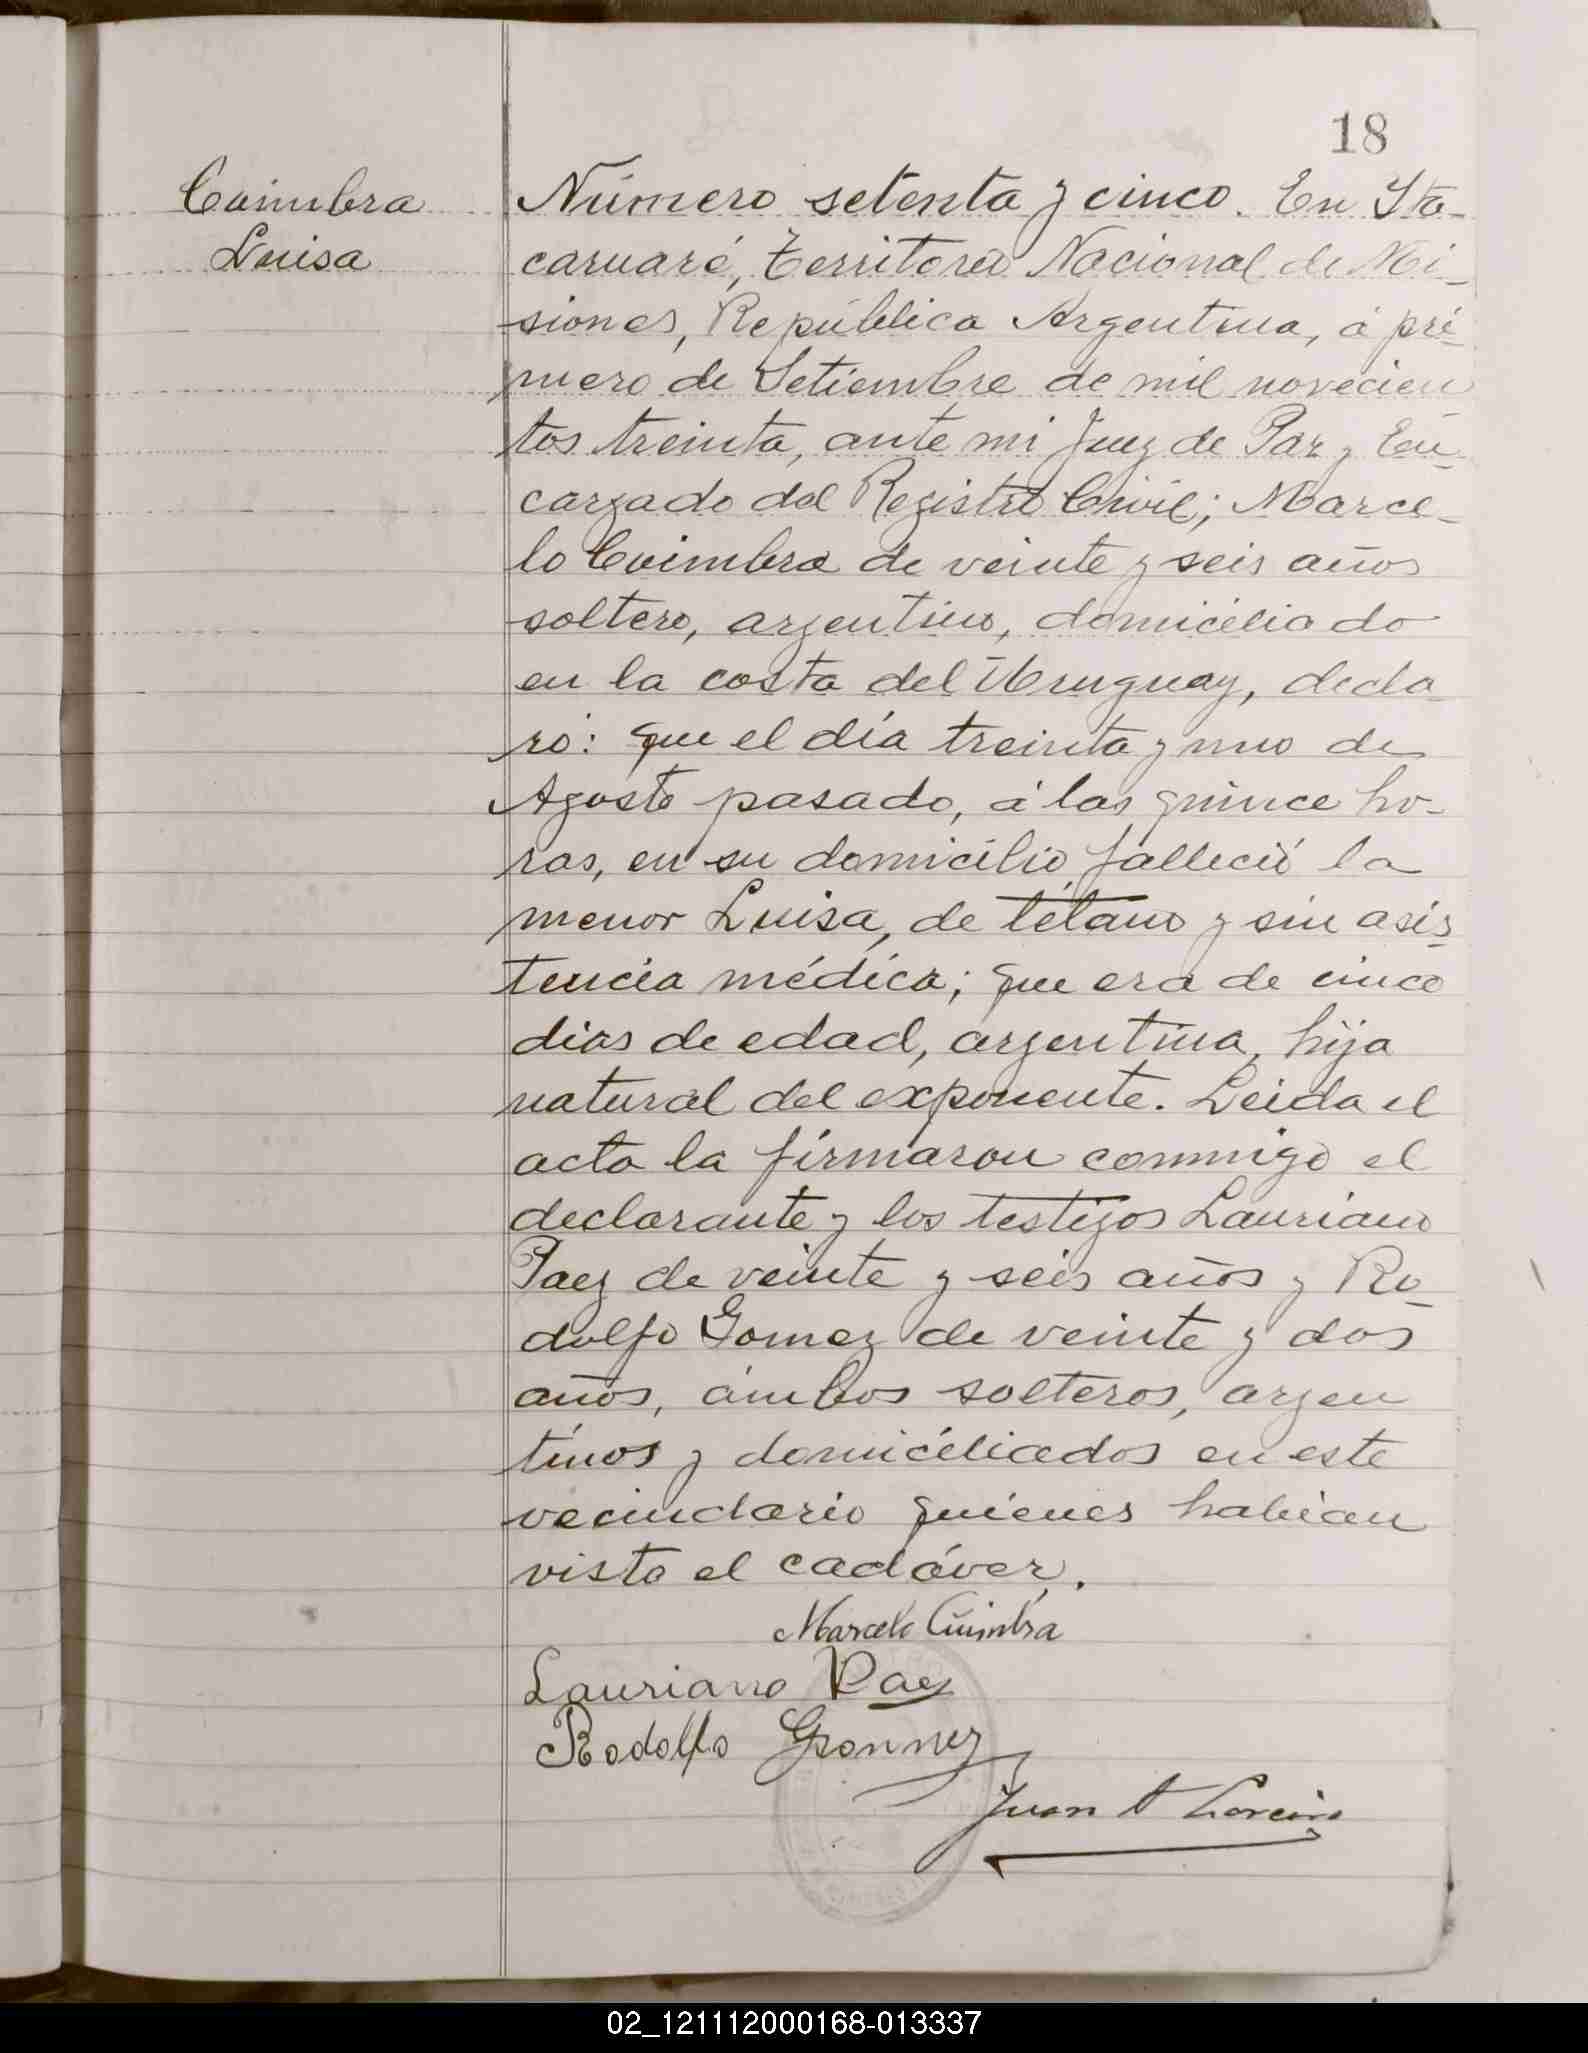 18
Coimbra
Luisa
Número setenta y cinco. En Ita-
caruaré, Territorio Nacional de Mi-
siones, República Argentina, á pri-
mero de Setiembre de mil novecien
tos treinta, ante mi Juez de Paz y En-
cargado del Registro Civil; Marce-
lo Coimbra de veinte y seis años
soltero, argentino, domiciliado
en la costa del Uruguay, decla-
ró: que el día treinta y uno de
Agosto pasado, á las quince ho-
ras, en su domicilio falleció la
menor Luisa, de tétano y sin asis-
tencia médica; que era de cinco
dias de edad, argentina, hija
natural del exponente. Leida el
acta la firmaron conmigo el
declarante y los testigos Lauriano
Paez de veinte y seis años y Ro-
dolfo Gomez de veinte y dos
años, ámbos solteros, argen
tinos y domiciliados en este
vecindario quienes habian
visto el cadáver.
Marcelo Cuimbra
Lauriano Paez
Rodolfo Gonmez
Juan A
02_121112000168-013337